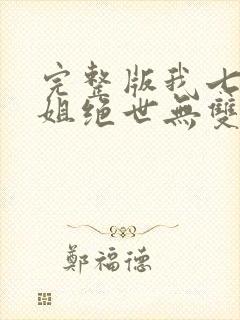 完整版我七
姐绝世無雙
鄭福德